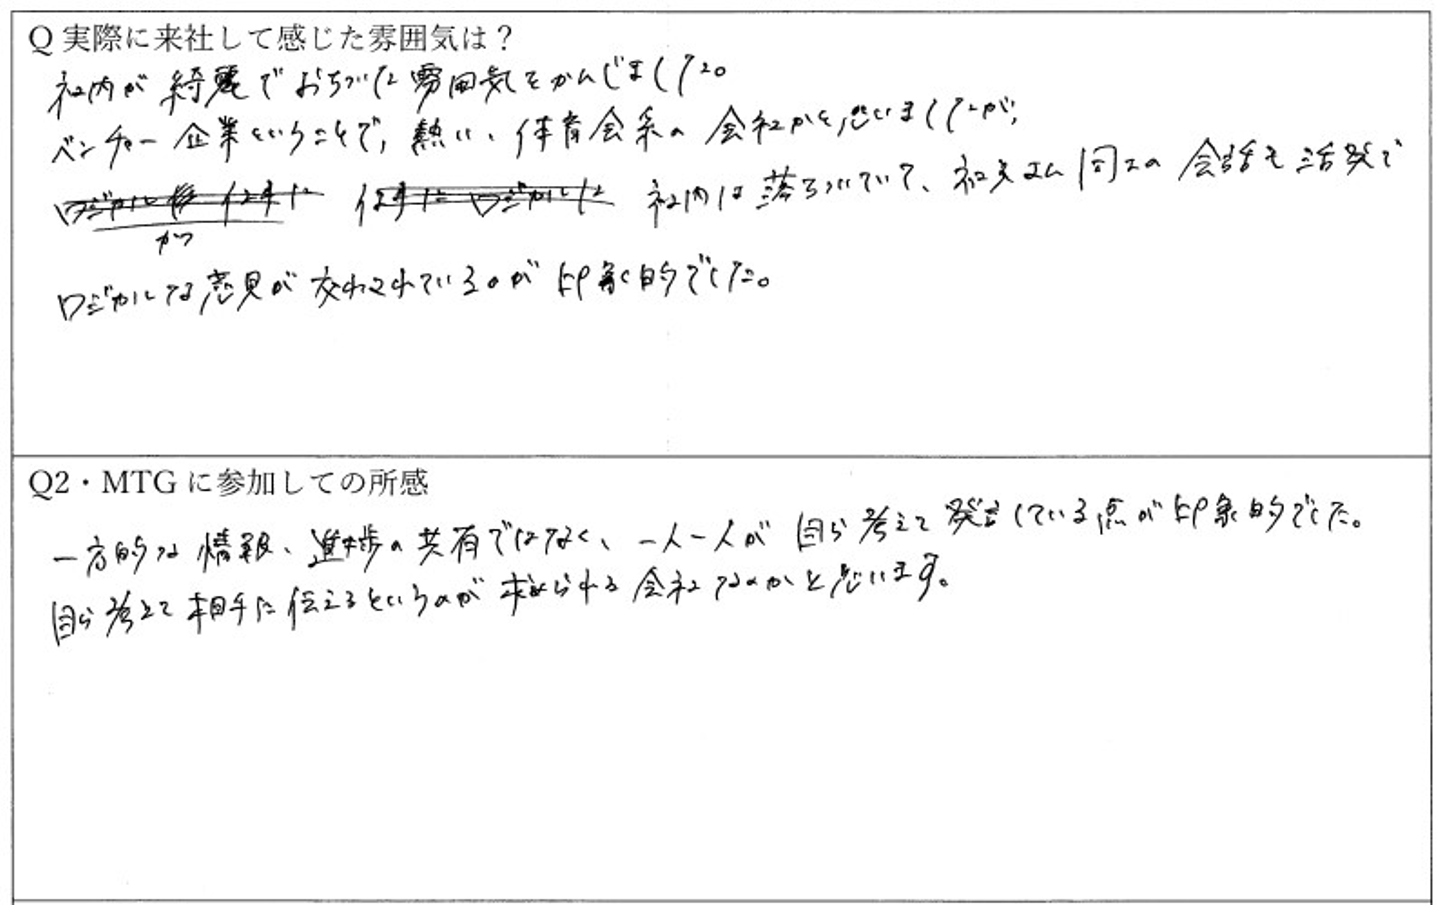 Q 実際に来社して感じた雰囲気は？
社内が綺麗でおちついた雰囲気をかんじました。
ベンチャー企業ということで, 熱い、体育会系の会社かと思いましたが,
社内は落ちついていて、社員さん同士の会話も活発で
かつ
ロジカルな意見が交わされているのが印象的でした。
Q2・MTG に参加しての所感
一方的な情報、進捗の共有ではなく、一人一人が自ら考えて発言している点が印象的でした。
自ら考えて相手に伝えるというのが求められる会社なのかと思います。